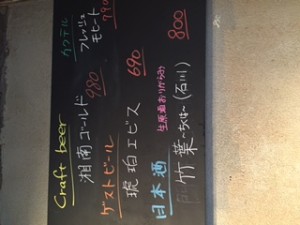 Craft beer
湘南ゴールド 980
ゲストビール
琥珀エビス 690
日本酒 生原酒おりがらみ
竹葉〜ちくは〜(石川) 800
カクテル
フレッシュ
モヒート 790